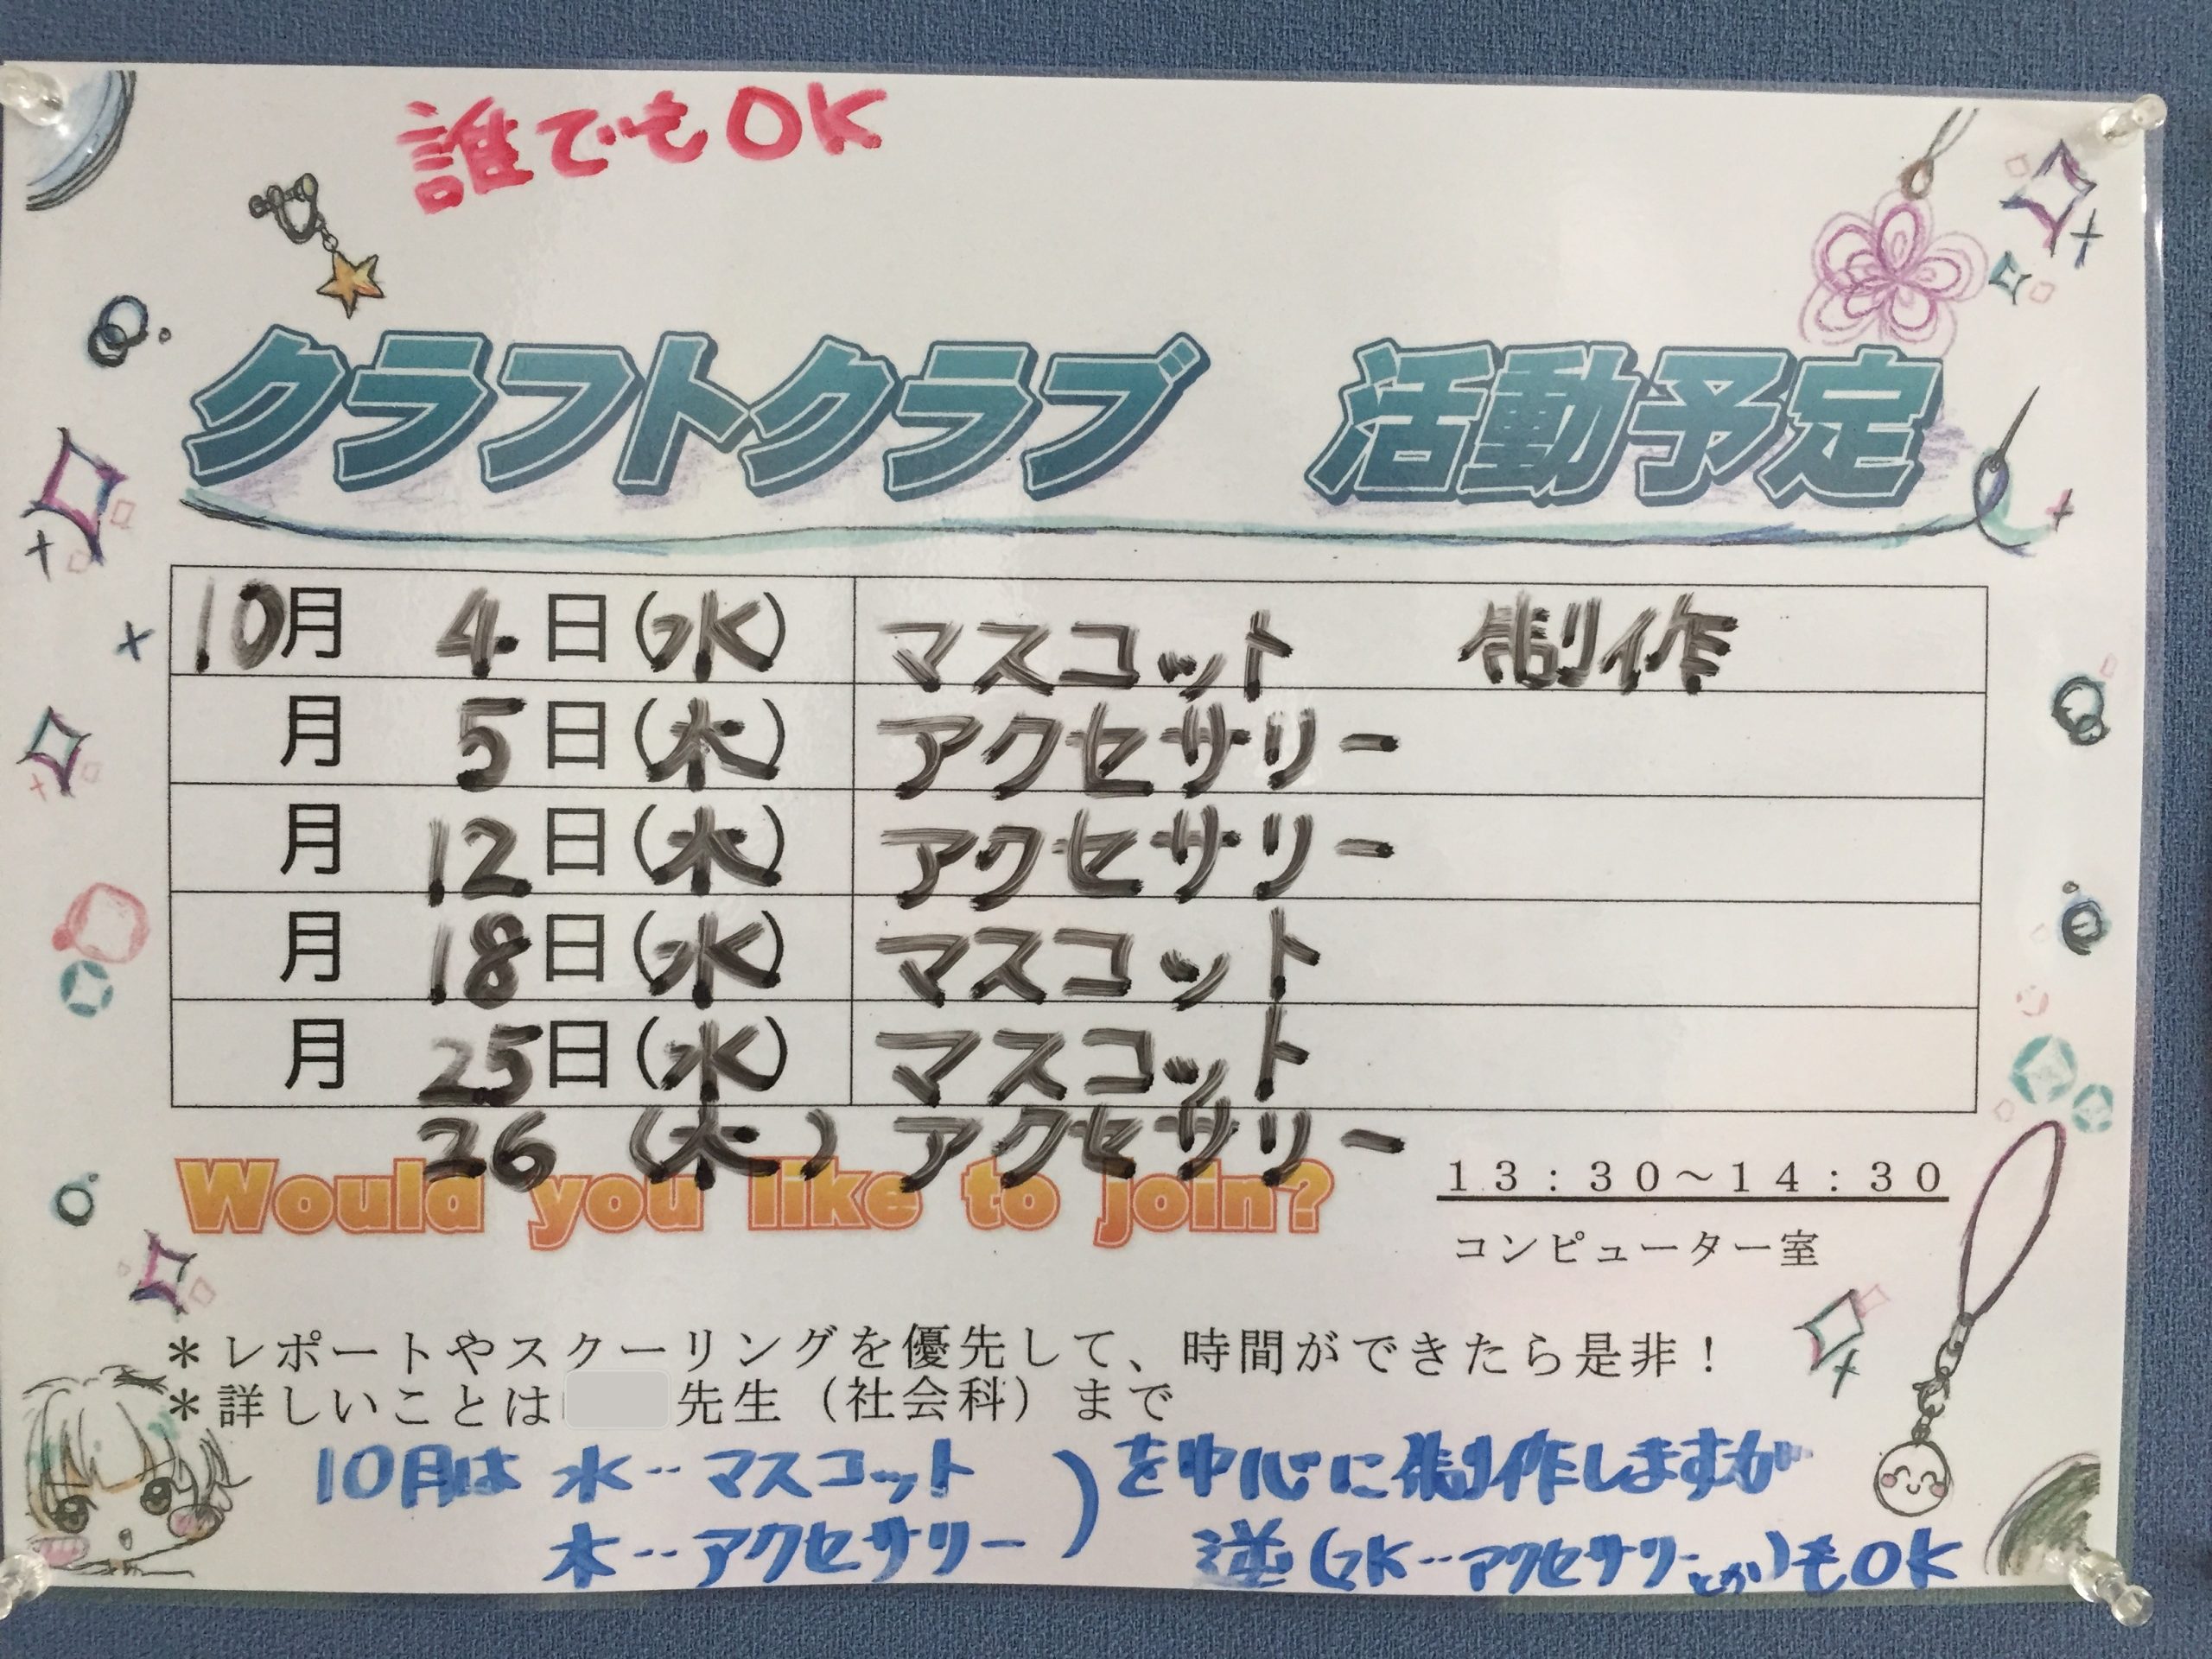 誰でもOK
クラフトクラブ　活動予定
10月 4日(水) マスコット 制作
月 5日(木) アクセサリー
月 12日(木) アクセサリー
月 18日(水) マスコット
月 25日(水) マスコット
26 (木) アクセサリー
Would you like to join?
１３：３０～１４：３０
コンピューター室
＊レポートやスクーリングを優先して、時間ができたら是非！
＊詳しいことは 先生（社会科）まで
10月は 水‥マスコット
木‥アクセサリー
)を中心に制作しますが
逆(水‥アクセサリーとか)もOK